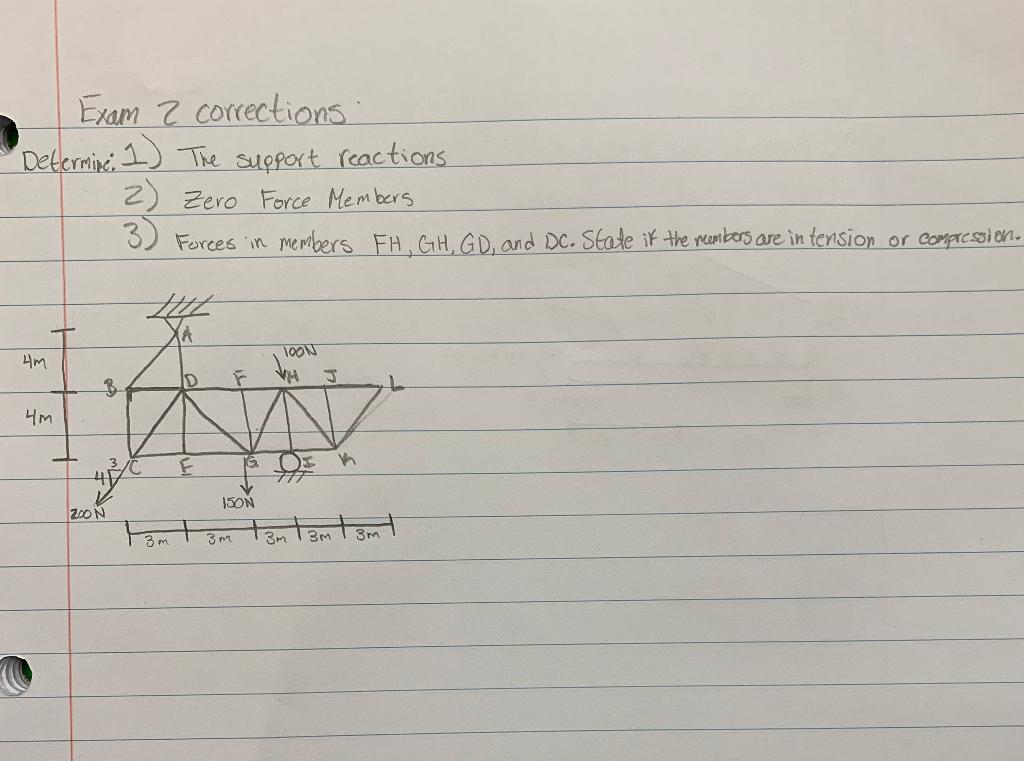 Exam 2 corrections
Determine: 1) The support reactions
2) Zero Force Members
3) Forces in members FH, GH, GD, and DC. State if the members are in tension or compression.
A
4m
100N
B D F H J L
4m
3 C E G I K
4
200N 150N
3m 3m 3m 3m 3m